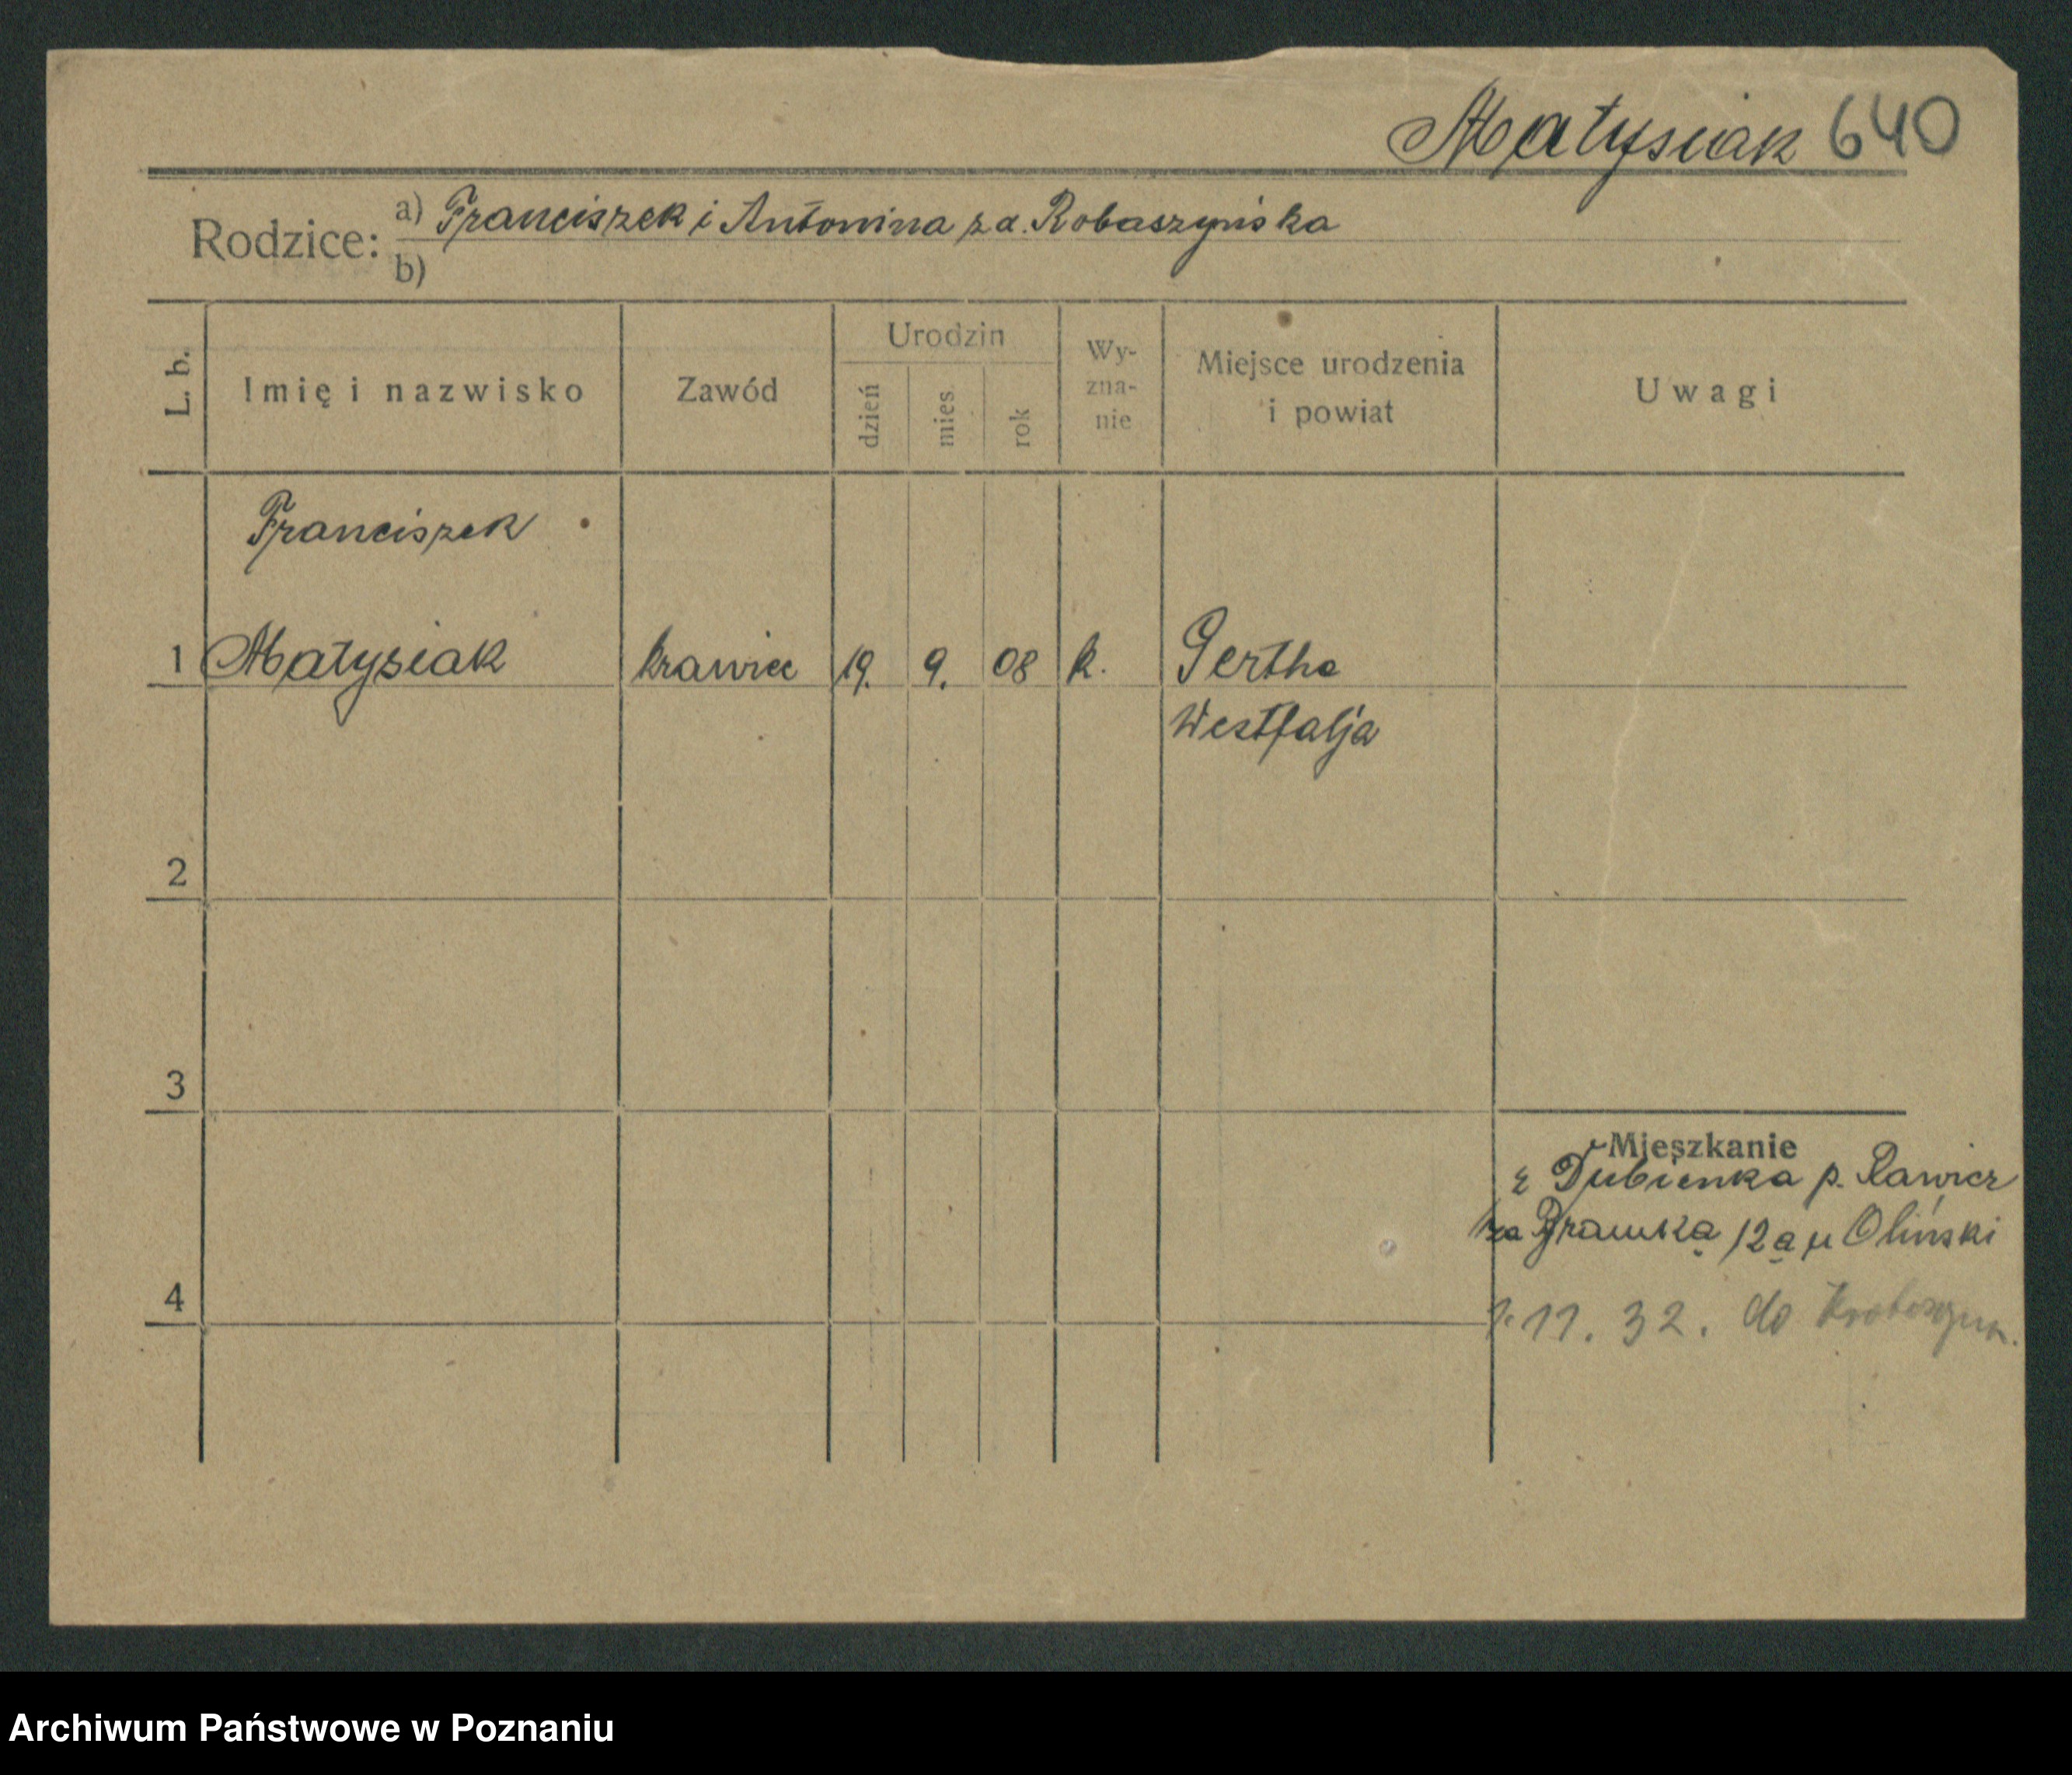 Matysiak 640
Rodzice: a) Franciszek i Antonina z d. Robaszyńska
b)
L. b. Imię i nazwisko Zawód Urodzin dzień mies. rok Wy-zna-nie Miejsce urodzenia i powiat Uwagi
Franciszek
1 Matysiak krawiec 19. 9. 08 k. Gerthe
Westfalja
2
3
Mieszkanie
z Dubienka p. Rawicz
za Bramką 12a u Oliński
4
1.11.32. do
Archiwum Państwowe w Poznaniu